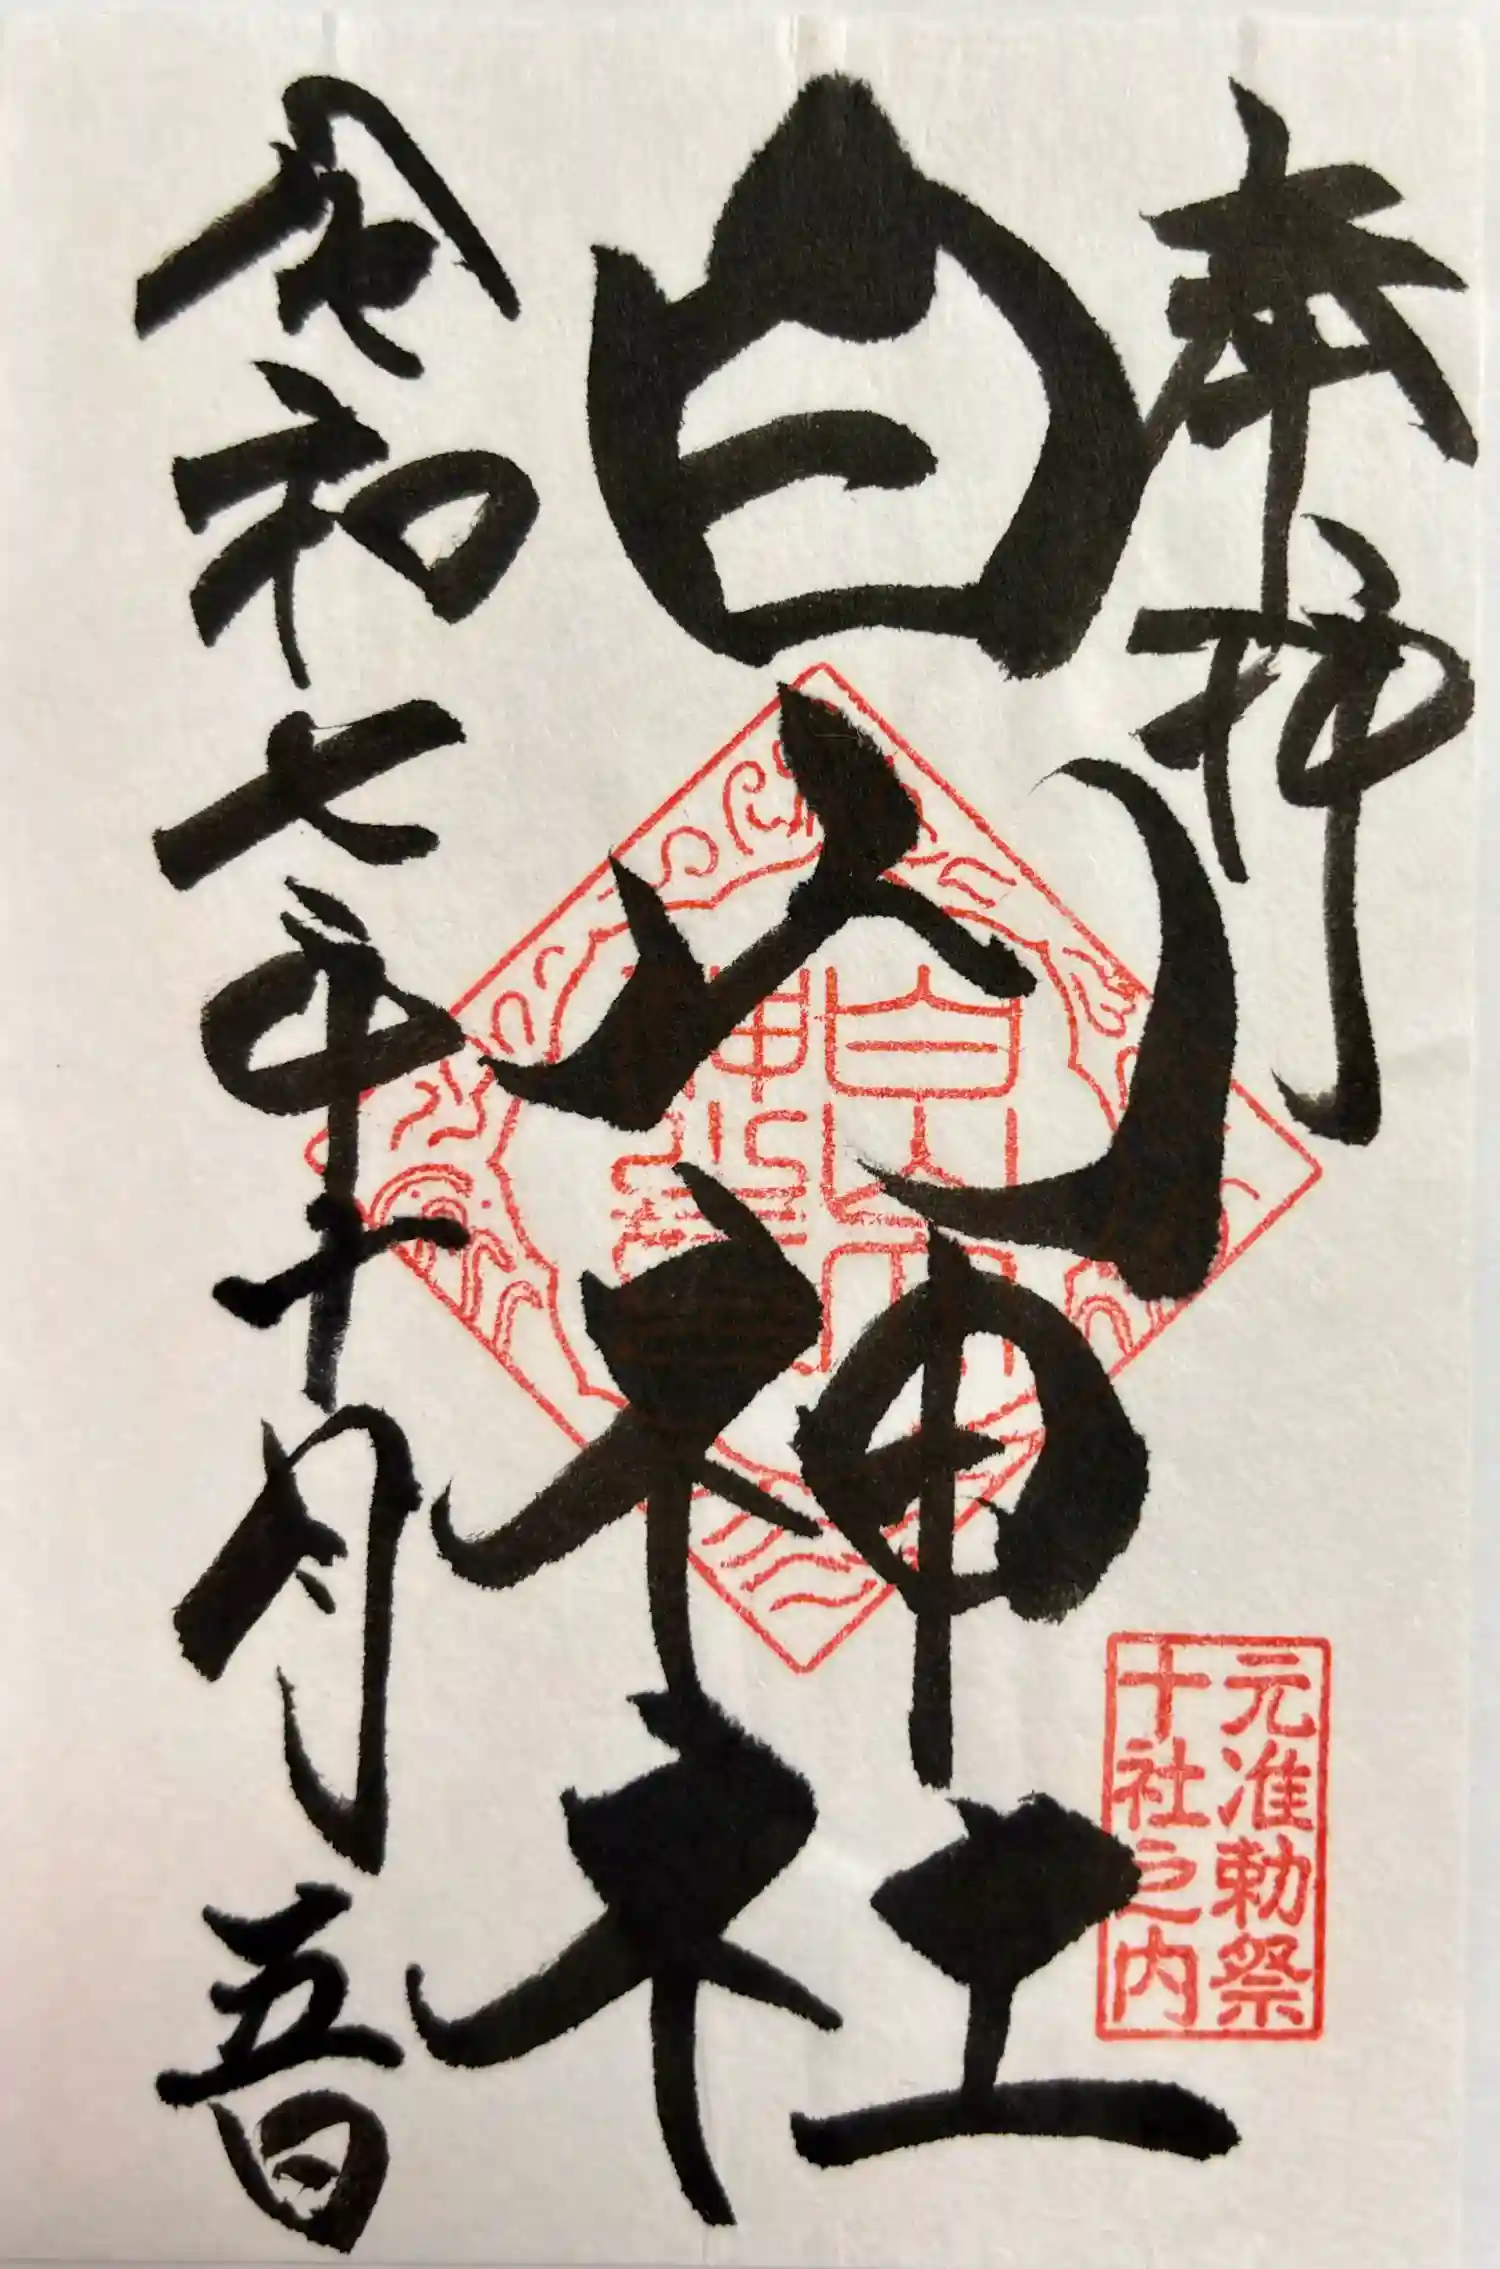 奉拝
白山神社
令和七年十月五日
元准勅祭
十社之内